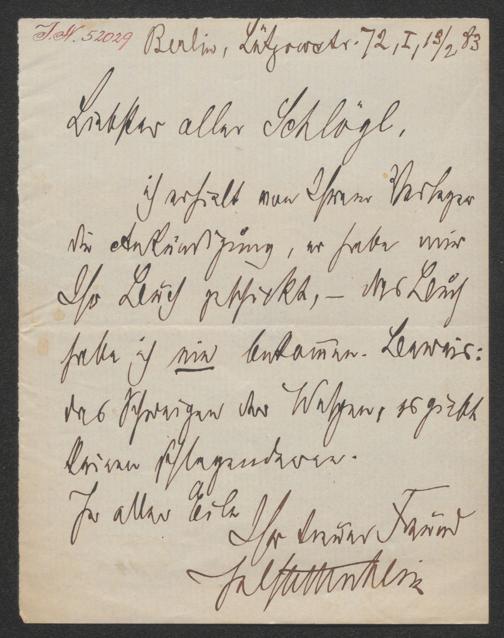 J.N. 52029
Berlin, Lützowstr. 72, I, 13/2 83
Liebster aller Schlögl,
ich erhielt von Ihrem Verleger
die Ankündigung, er habe mir
Ihr Buch geschickt, – das Buch
habe ich nie bekommen. Beweis:
das Schweigen der Wespen, es giebt
keinen schlagenderen.
In aller Eile
Ihr treuer Freund